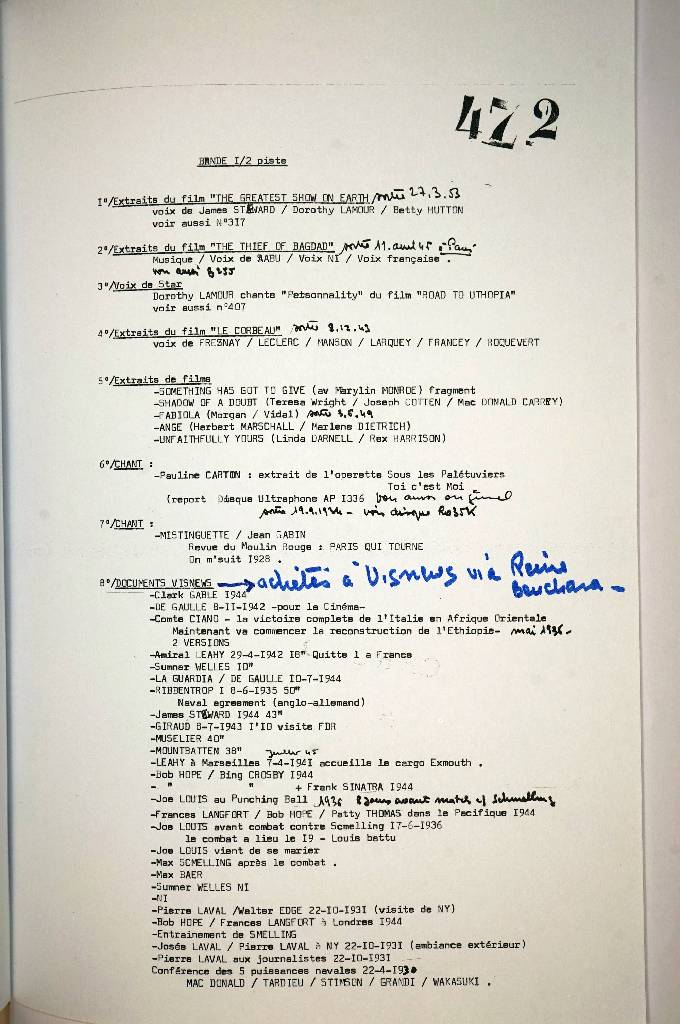 472
BANDE I/2 piste
1°/Extraits du film "THE GREATEST SHOW ON EARTH sortie 27.3.53
voix de James STEWARD / Dorothy LAMOUR / Betty HUTTON
voir aussi N°317
2°/Extraits du film "THE THIEF OF BAGDAD" sortie 11. avril 45 à Paris
Musique / Voix de SABU / Voix NI / Voix française .
voir aussi 8255
3°/Voix de Star
Dorothy LAMOUR chante "Petsonnality" du film "ROAD TO UTHOPIA"
voir aussi n°407
4°/Extraits du film "LE CORBEAU" sortie 8.12.43
voix de FRESNAY / LECLERC / MANSON / LARQUEY / FRANCEY / ROQUEVERT
5°/Extraits de films
-SOMETHING HAS GOT TO GIVE (av Marylin MONROE) fragment
-SHADOW OF A DOUBT (Teresa Wright / Joseph COTTEN / Mac DONALD CARREY)
-FABIOLA (Morgan / Vidal) sortie 3.6.49
-ANGE (Herbert MARSCHALL / Marlene DIETRICH)
-UNFAITHFULLY YOURS (Linda DARNELL / Rex HARRISON)
6°/CHANT :
-Pauline CARTON : extrait de l'operette Sous les Palétuviers
Toi c'est Moi
(report Disque Ultraphone AP I336 bon aussi original
sortie 19.9.1934 - voir disque R035K
7°/CHANT :
-MISTINGUETTE / Jean GABIN
Revue du Moulin Rouge : PARIS QUI TOURNE
On m'suit I928 .
8°/DOCUMENTS VISNEWS → achetés à Visnews via Reine
Bouchara -
-Clark GABLE I944
-DE GAULLE 8-II-I942 -pour le Cinéma-
-Comte CIANO - la victoire complete de l'Italie en Afrique Orientale
Maintenant va commencer la reconstruction de l'Ethiopie- mai 1936 -
2 VERSIONS
-Amiral LEAHY 29-4-I942 I8" Quitte l a France
-Sumner WELLES I0"
-LA GUARDIA / DE GAULLE I0-7-I944
-RIBBENTROP I 8-6-I935 50"
Naval agreement (anglo-allemand)
-James STEWARD I944 43"
-GIRAUD 8-7-I943 I'I0 visite FDR
-MUSELIER 40"
-MOUNTBATTEN 38" Juillet 45
-LEAHY à Marseilles 7-4-I94I accueille le cargo Exmouth .
-Bob HOPE / Bing CROSBY I944
- " " + Frank SINATRA I944
-Joe LOUIS au Punching Ball 1936 8 jours avant match c/ Schmelling
-Frances LANGFORT / Bob HOPE / Patty THOMAS dans le Pacifique I944
-Joe LOUIS avant combat contre Scmelling I7-6-I936
le combat a lieu le I9 - Louis battu
-Joe LOUIS vient de se marier
-Max SCMELLING après le combat .
-Max BAER
-Sumner WELLES NI
-NI
-Pierre LAVAL /Walter EDGE 22-I0-I93I (visite de NY)
-Bob HOPE / Frances LANGFORT à Londres I944
-Entrainement de SMELLING
-Josée LAVAL / Pierre LAVAL à NY 22-I0-I93I (ambiance extérieur)
-Pierre LAVAL aux journalistes 22-I0-I93I
Conférence des 5 puissances navales 22-4-I930
MAC DONALD / TARDIEU / STIMSON / GRANDI / WAKASUKI .